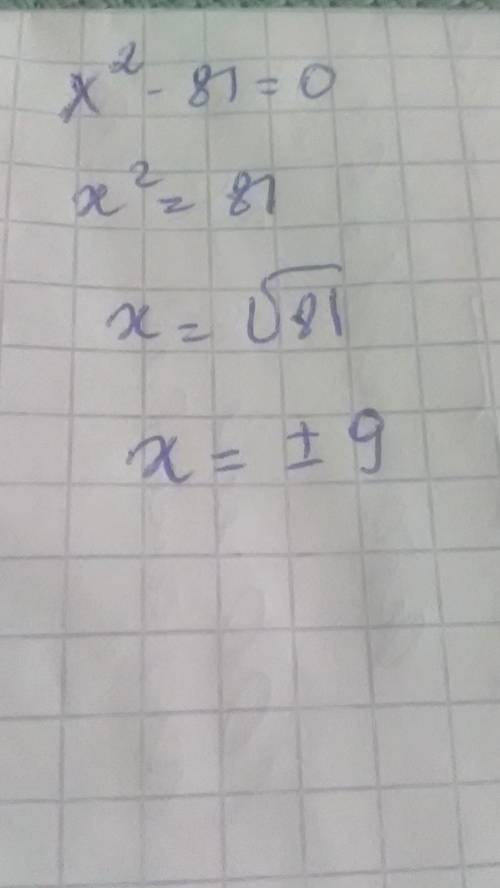 x² - 81 = 0
x² = 81
x = √81
x = ± 9